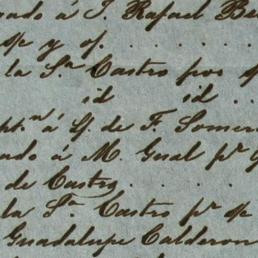 gado á J. Rafael Be
de y of. . . . . .
la S.ra Castro por de
id id . .
pt.n á Lf. de F. Somer
ado á M. Gual p.r G
de Castro . . . .
la S.ra Castro p.r de
Guadalupe Calderon